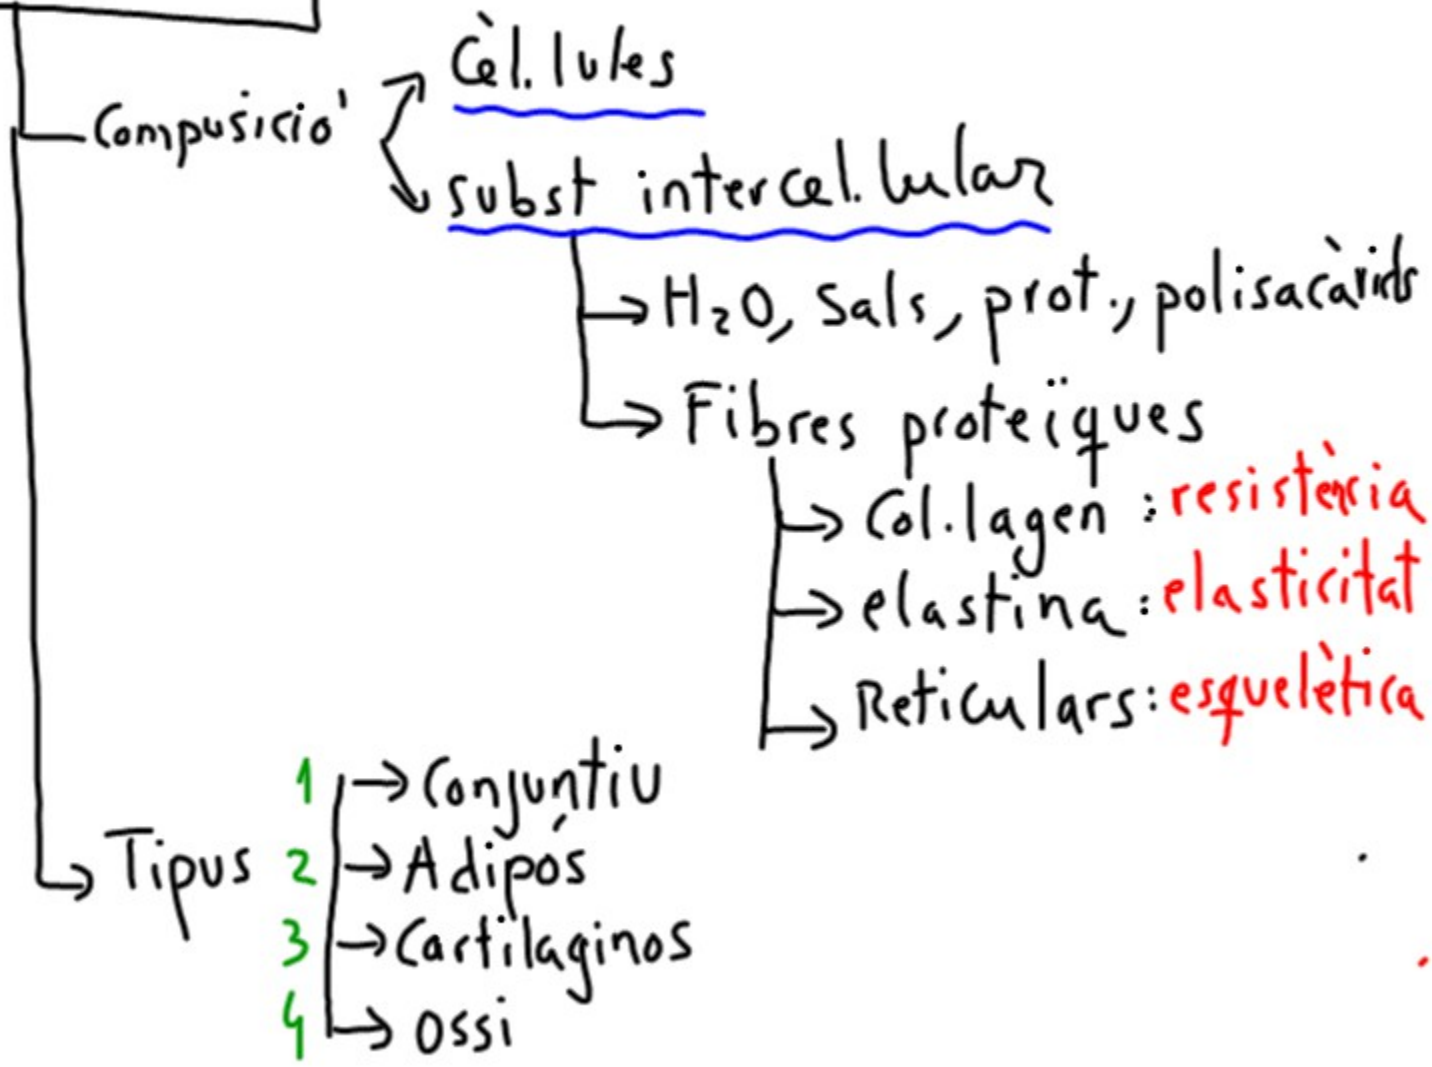 Cèl.lules
Compusició
subst intercel.lular
H₂O, Sals, prot., polisacàrids
Fibres proteïques
Col.lagen : resistència
elastina : elasticitat
Reticulars : esquelètica
1 → Conjuntiu
Tipus 2 → Adipós
3 → Cartilaginos
4 → ossi